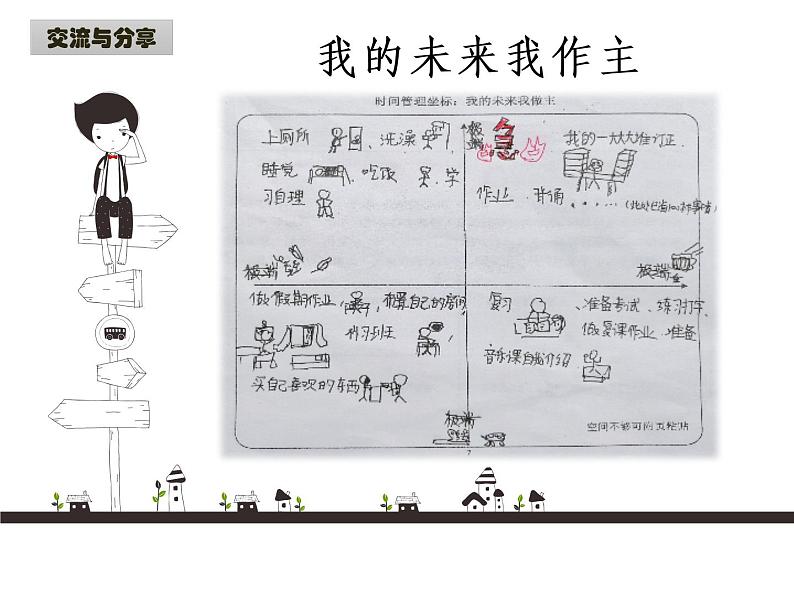 交流与分享
我的未来我作主
时间管理坐标：我的未来我做主
上厕所 、洗澡
极端 急
我的一大大堆订正
睡觉 吃饭 学
作业、背诵、……（此处已省100件事情）
习自理
极端轻
极端
做假期作业， 布置自己的房间
复习 、准备考试、练习打字、
补习班
做暑课作业、准备
音乐课自我介绍
买自己喜欢的东西
极端
空间不够可附页粘贴
7